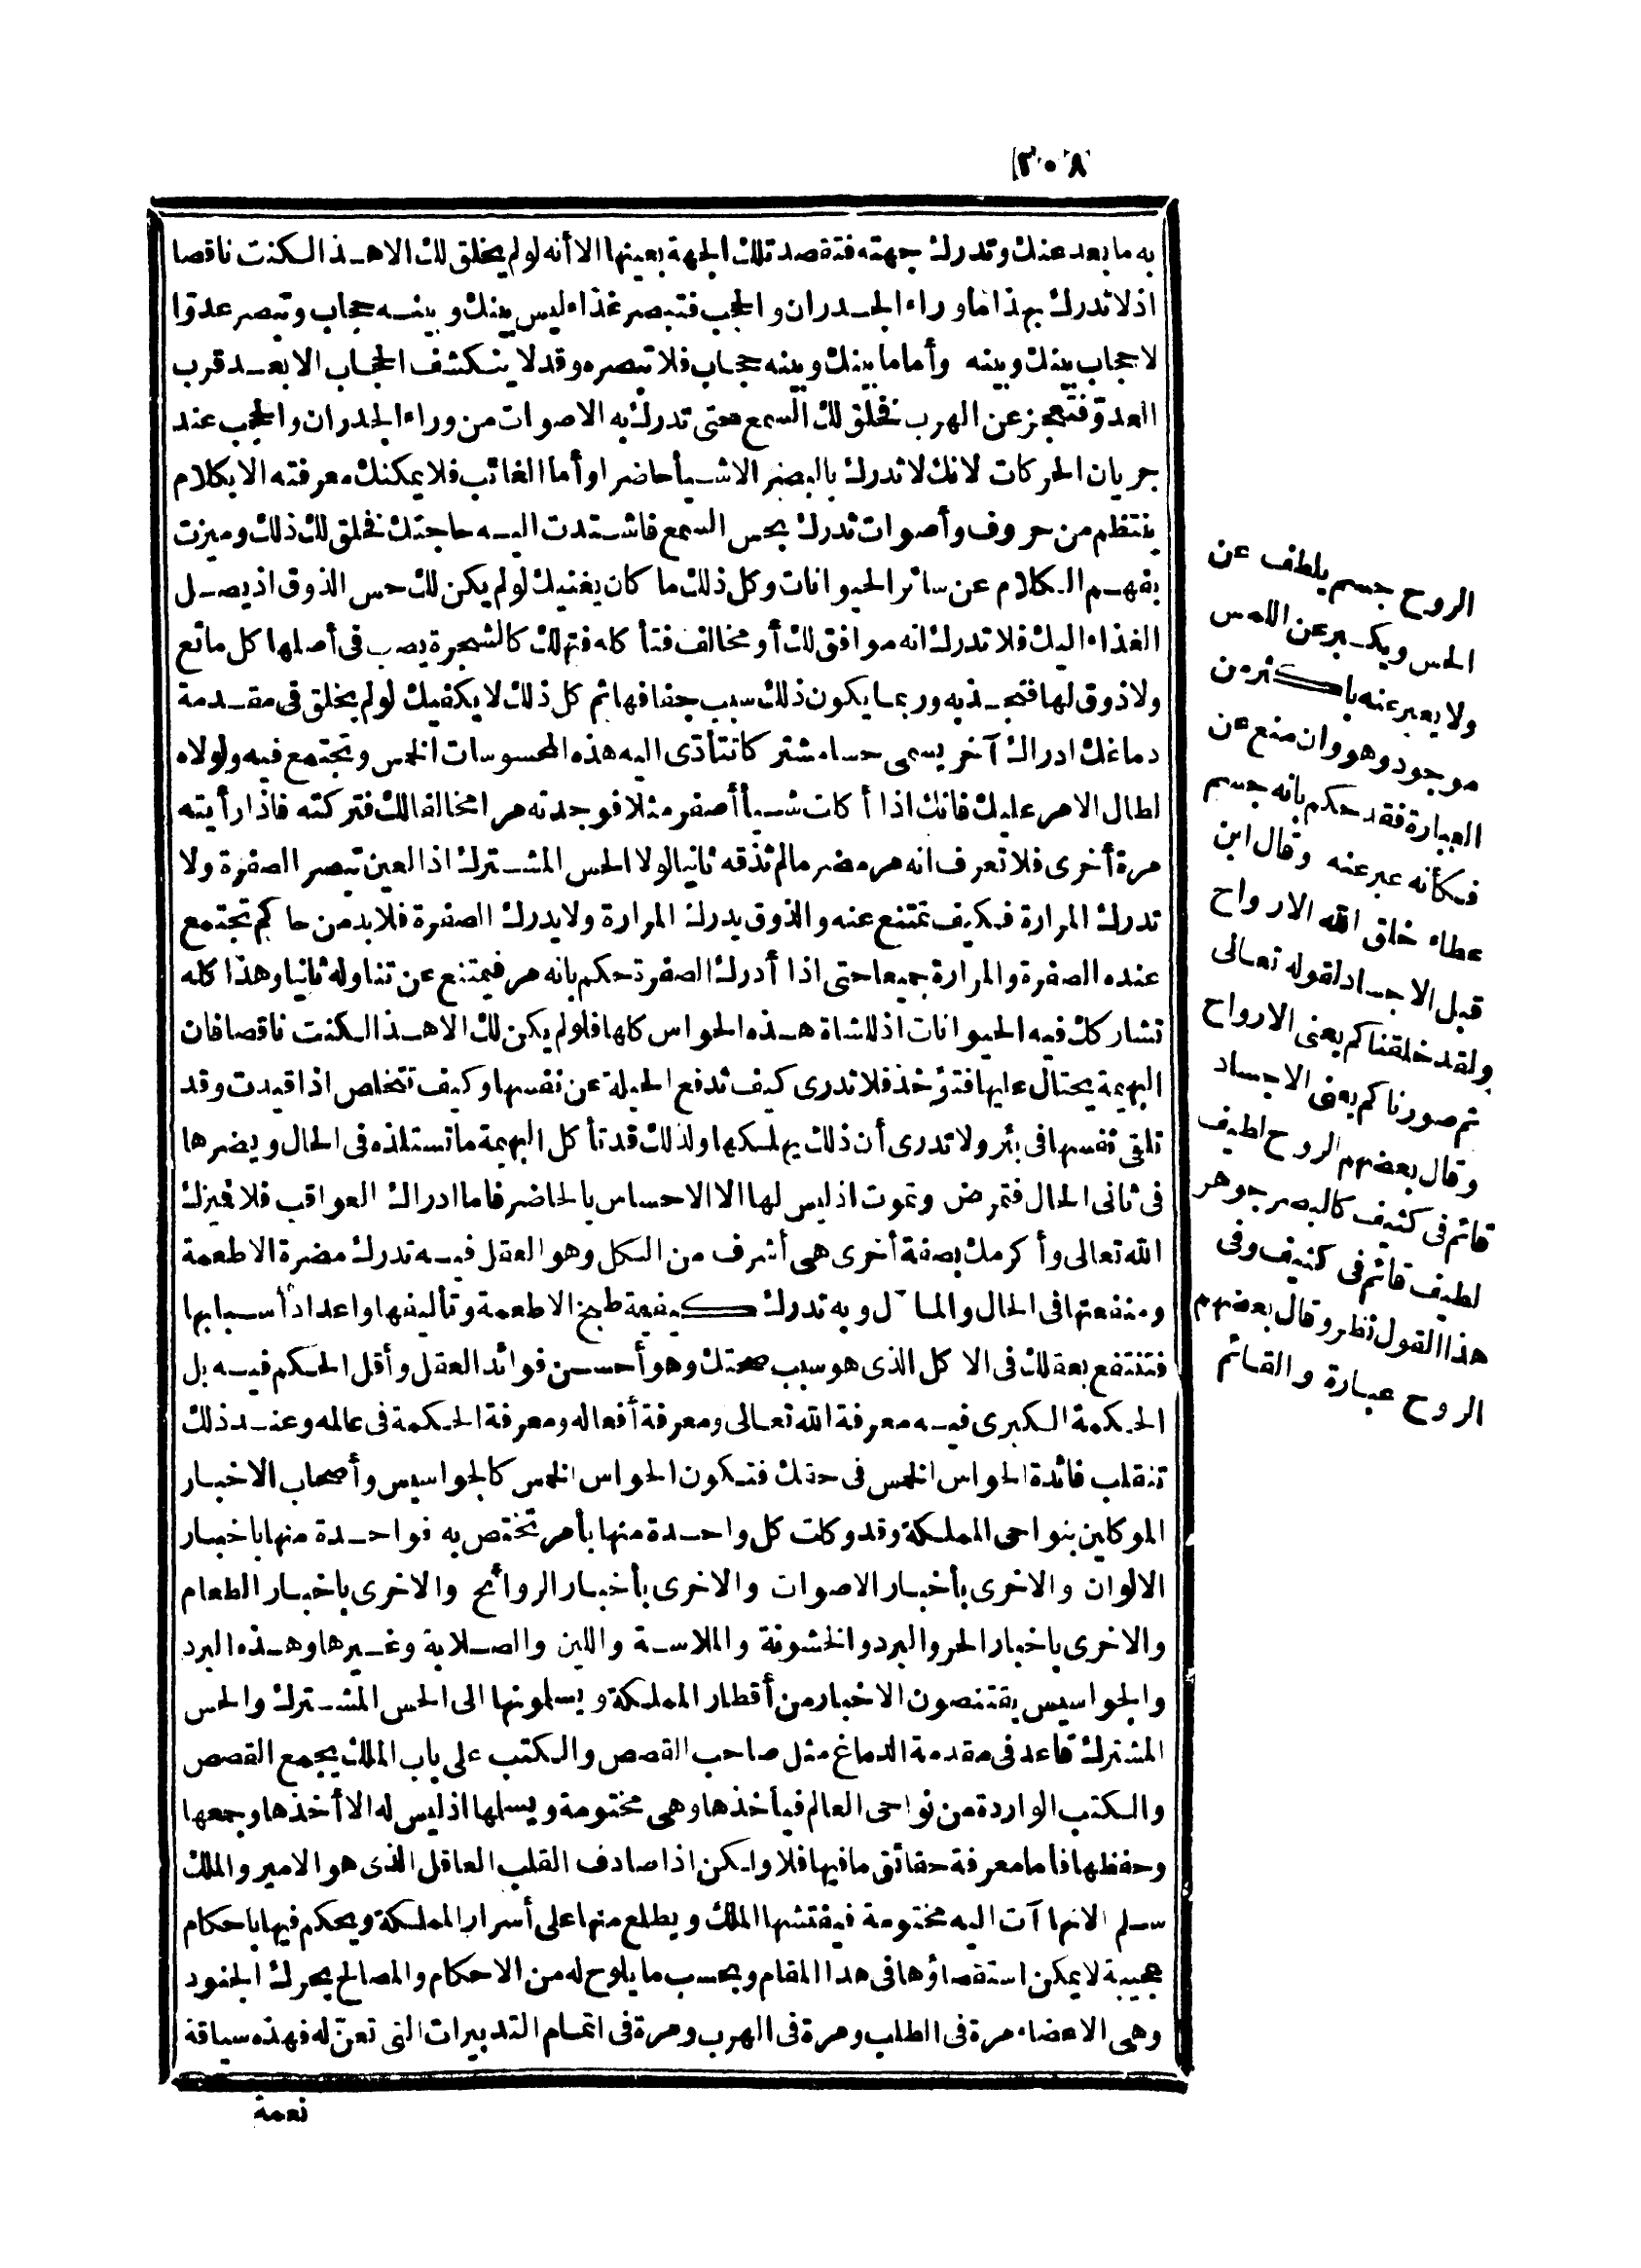 ٣٠٨
به ما بعد عنك وتدرك جهته فتقصد تلك الجهة بعينها الا أنه لو لم يخلق لك الا هذا لكنت ناقصا
اذ لا تدرك بهذا ما وراء الجدران والحجب فتبصر غذاء ليس بينك وبينه حجاب وتبصر عدوّا
لا حجاب بينك وبينه وأما ما بينك وبينه حجاب فلا تبصره وقد لا ينكشف الحجاب الا بعد قرب
العدوّ فتعجز عن الهرب فخلق لك السمع حتى تدرك به الاصوات من وراء الجدران والحجب عند
جريان الحركات لانك لا تدرك بالبصر الا شيأ حاضرا وأما الغائب فلا يمكنك معرفته الا بكلام
ينتظم من حروف وأصوات تدرك بحس السمع فاشتدت اليه حاجتك فخلق لك ذلك وميزت
بفهم الكلام عن سائر الحيوانات وكل ذلك ما كان يغنيك لو لم يكن لك حس الذوق اذ يصل
الغذاء اليك فلا تدرك انه موافق لك أو مخالف فتأكله فتهلك كالشجرة يصب فى أصلها كل مائع
ولا ذوق لها فتجذبه وربما يكون ذلك سبب جفافها ثم كل ذلك لا يكفيك لو لم يخلق فى مقدمة
دماغك ادراك آخر يسمى حسا مشتركا تتأدّى اليه هذه المحسوسات الخمس وتجتمع فيه ولولاه
لطال الامر عليك فانك اذا أكلت شيأ أصفر مثلا فوجدته مرا مخالفا لك فتركته فاذا رأيته
مرة أخرى فلا تعرف انه مر مضر ما لم تذقه ثانيا لولا الحس المشترك اذ العين تبصر الصفرة ولا
تدرك المرارة فكيف تمتنع عنه والذوق يدرك المرارة ولا يدرك الصفرة فلا بد من حاكم تجتمع
عنده الصفرة والمرارة جميعا حتى اذا أدرك الصفرة حكم بانه مر فيمتنع عن تناوله ثانيا وهذا كله
تشاركك فيه الحيوانات اذ للشاة هذه الحواس كلها فلو لم يكن لك الا هذا لكنت ناقصا فان
البهيمة يحتال عليها فتؤخذ فلا تدرى كيف تدفع الحيلة عن نفسها وكيف تتخلص اذا قيدت وقد
تلقى نفسها فى بئر ولا تدرى أن ذلك يهلكها ولذلك قد تأكل البهيمة ما تستلذه فى الحال ويضرها
فى ثانى الحال فتمرض وتموت اذ ليس لها الا الاحساس بالحاضر فاما ادراك العواقب فلا فميزك
الله تعالى وأكرمك بصفة أخرى هى أشرف من الكل وهو العقل فيه تدرك مضرة الاطعمة
ومنفعتها فى الحال والمآل وبه تدرك كيفية طبخ الاطعمة وتأليفها واعداد أسبابها
فتنتفع بعقلك فى الاكل الذى هو سبب صحتك وهو أحسن فوائد العقل وأقل الحكم فيه بل
الحكمة الكبرى فيه معرفة الله تعالى ومعرفة أفعاله ومعرفة الحكمة فى عالمه وعند ذلك
تنقلب فائدة الحواس الخمس فى حقك فتكون الحواس الخمس كالجواسيس وأصحاب الاخبار
الموكلين بنواحى المملكة وقد وكلت كل واحدة منها بأمر تختص به فواحدة منها باخبار
الالوان والاخرى بأخبار الاصوات والاخرى بأخبار الروائح والاخرى باخبار الطعام
والاخرى باخبار الحر والبرد والخشونة والملاسة واللين والصلابة وغيرها وهذه البرد
والجواسيس يقتنصون الاخبار من أقطار المملكة ويسلمونها الى الحس المشترك والحس
المشترك قاعد فى مقدمة الدماغ مثل صاحب القصص والكتب على باب الملك يجمع القصص
والكتب الواردة من نواحى العالم فيأخذها وهى مختومة ويسلمها اذ ليس له الا أخذها وجمعها
وحفظها فاما معرفة حقائق ما فيها فلا ولكن اذا صادف القلب العاقل الذى هو الامير والملك
سلم الانهاآت اليه مختومة فيفتشها الملك ويطلع منها على أسرار المملكة ويحكم فيها باحكام
عجيبة لا يمكن استقصاؤها فى هذا المقام وبحسب ما يلوح له من الاحكام والمصالح يحرك الجنود
وهى الاعضاء مرة فى الطلب ومرة فى الهرب ومرة فى اتمام التدبيرات التى تعنّ له فهذه سياقة
نعمة
الروح جسم يلطف عن
الحس ويكبر عن اللمس
ولا يعبر عنه بأكثر من
موجود وهو وان منع عن
العبارة فقد حكم بانه جسم
فكأنه عبر عنه وقال ابن
عطاء خلق الله الارواح
قبل الاجساد لقوله تعالى
ولقد خلقناكم يعنى الارواح
ثم صورناكم يعنى الاجساد
وقال بعضهم الروح لطيف
قائم فى كثيف كالبصر جوهر
لطيف قائم فى كثيف وفى
هذا القول نظر وقال بعضهم
الروح عبارة والقائم